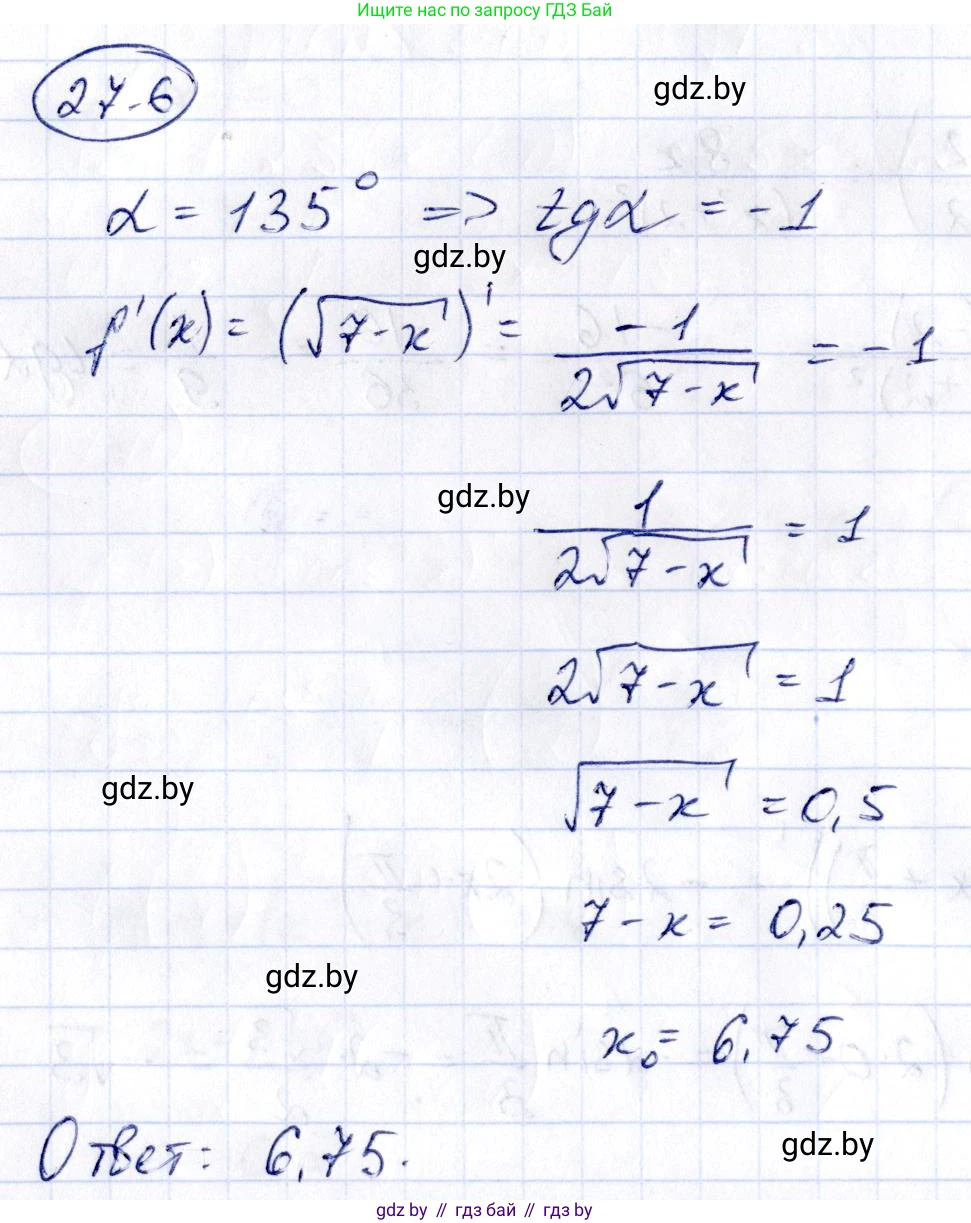 Ищите нас по запросу ГДЗ Бай
27-6
gdz.by
α = 135° => tgα = -1
gdz.by
f'(x) = (√(7-x))' = -1/(2√(7-x)) = -1
gdz.by
1/(2√(7-x)) = 1
2√(7-x) = 1
gdz.by
√(7-x) = 0,5
7-x = 0,25
gdz.by
x₀ = 6,75
Ответ: 6,75.
gdz.by
gdz.by // гдз бай // гдз by